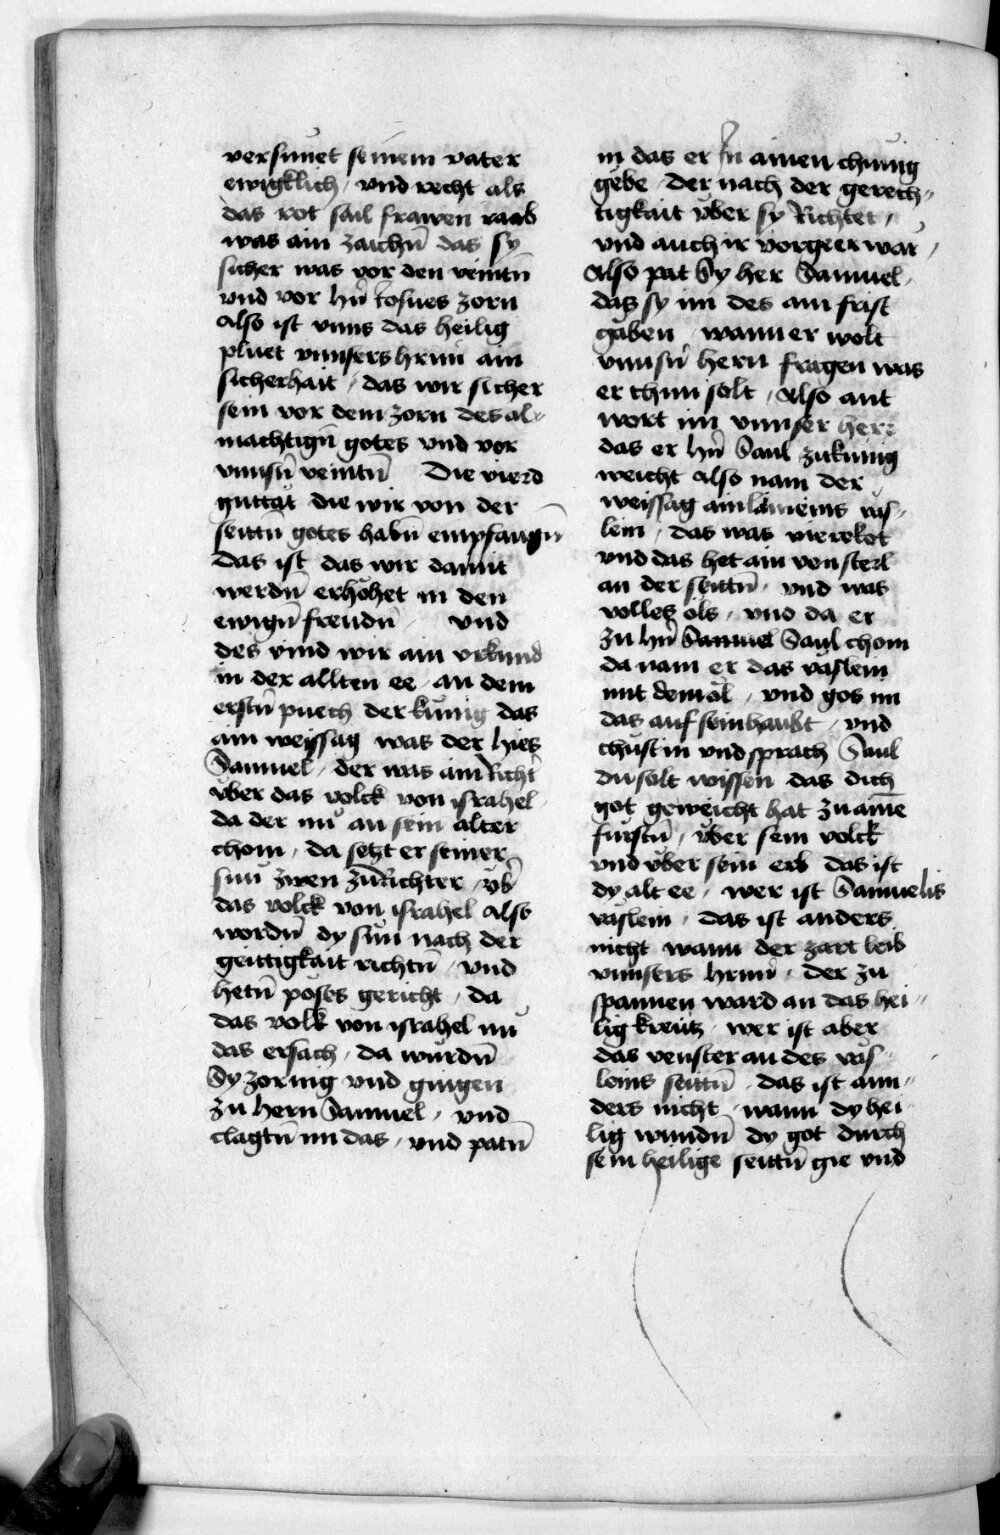 versunet seinem vater
ewigklich / vnd recht als
das rot sail frawen raab
was ain zaichn̄ das sy
sicher was vor den veintn̄
vnd vor hn̄ Iosues zorn
Also ist vnns das heilig
pluet vnnsers hrnn ain
sicherhait / das wir sicher
sein vor dem zorn des al-
machtign̄ gotes vnd vor
vnnsn̄ veintn̄ Die vierd
guttat die wir von der
seittn̄ gotes habn̄ empfangn̄
das ist das wir damit
werdn̄ erhöhet in den
ewign̄ freudn̄ / vnd
des vind wir ain vrkund
in der allten ee / an dem
erstn̄ puech der künig das
ain weissag was der hies
Samuel / der was ain Richt̄
vber das volck von israhel
da der nů an sein alter
chom / da setzt er seiner
sün zwen zu Richter / vb̄
das volck von israhel Also
wordn̄ dy sün nach der
geittigkait richtn̄ / vnd
hetn̄ poses gericht / da
das volk von israhel nů
das ersach / da wurdn̄
Sy zornig vnd gingen
zu hern Samuel / vnd
clagtn̄ im das / vnd patn̄
in das er In ainen chunig
gebe / der nach der gerech-
tigkait vber sy Richtet /
vnd auch ir vorgeer war /
Also pat Sy her Samuel /
das sy im des ain frist
gaben / wann er wolt
vnnsn̄ hern fragen was
er thun solt / Also ant
wort im vnnser herr
das er hn̄ Saul zu kunig
weicht Also nam der
weissag ain lameins vas-
lein / das was vierekot
vnd das het ain vensterl
an der seittn̄ / vnd was
volles öls / vnd da er
zu hn̄ Samuel Saul chom
da nam er das vaslein
mit dem öl / vnd gos im
das auf sein haubt / vnd
chust in vnd sprach Saul
du solt wissen das dich
got geweicht hat zu aine
furstn̄ / vber sein volck
vnd vber sein erb das ist
dy alt ee / wer ist Samuelis
vaslein / das ist anders
nicht wann der zart leib
vnnsers hrnn / der zu
spannen ward an das hei-
lig kreutz / wer ist aber
das venster an des vas-
leins seittn̄ / das ist ann-
ders nicht / wann dy hei
lig wundn̄ dy got durch
sein heilige seittn̄ gie vnd